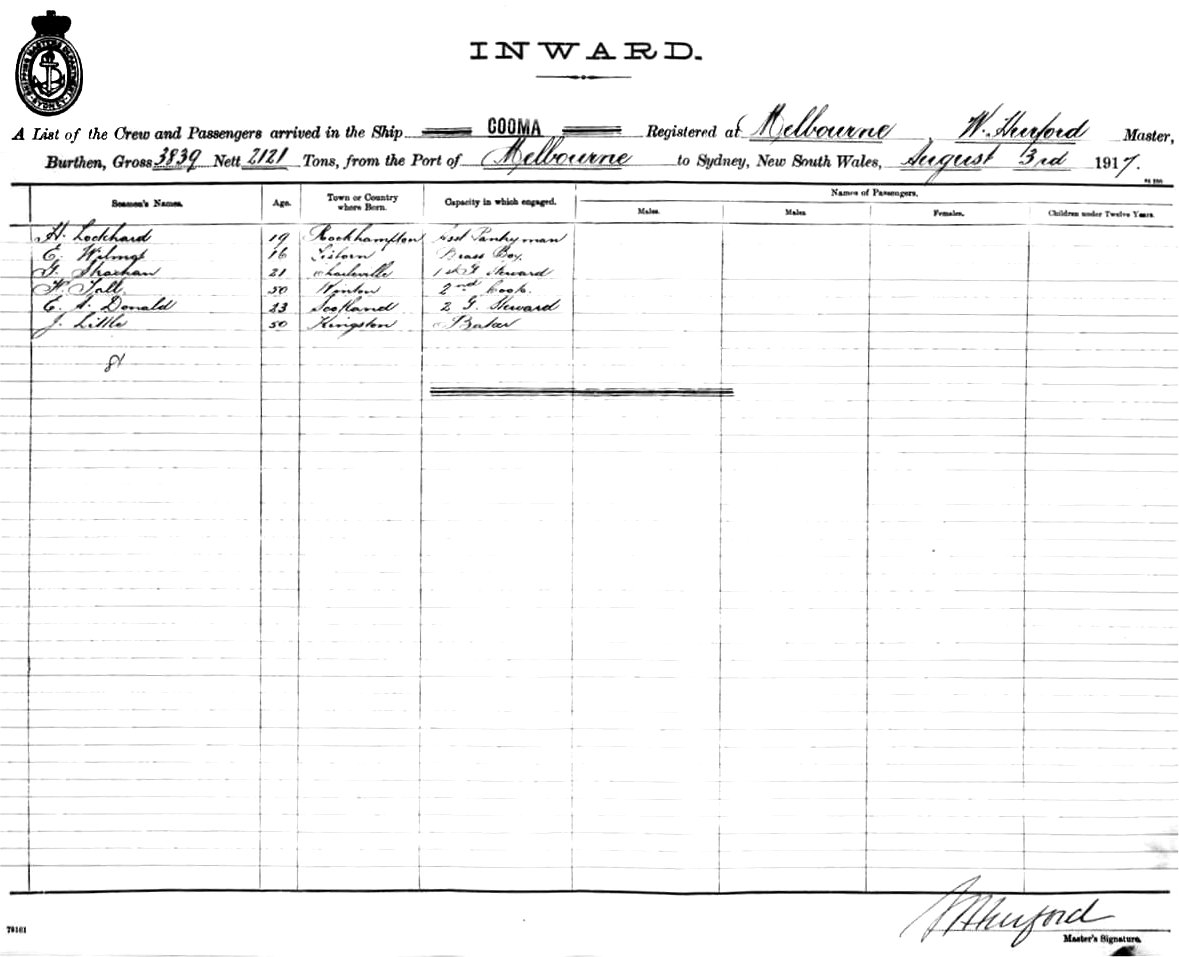 SHIPPING MASTERS DEPARTMENT SYDNEY
INWARD.
A List of the Crew and Passengers arrived in the Ship COOMA Registered at Melbourne, W. Hurford Master,
Burthen, Gross 3839 Nett 2121 Tons, from the Port of Melbourne to Sydney, New South Wales, August 3rd 1917.
Names of Passengers.
Seamen's Names. Age. Town or Country where Born. Capacity in which engaged. Males. Males Females. Children under Twelve Years.
H. Lockhard 19 Rockhampton Asst Pantryman
E. Wilmot 16 Gisborn Brass Boy.
G. Strachan 21 Charleville 1st G Steward
50 Winton 2nd Cook.
E. A. Donald 23 Scotland 2 G. Steward
J. Little 50 Kingston Baker
Hurford
78161 Master's Signature.